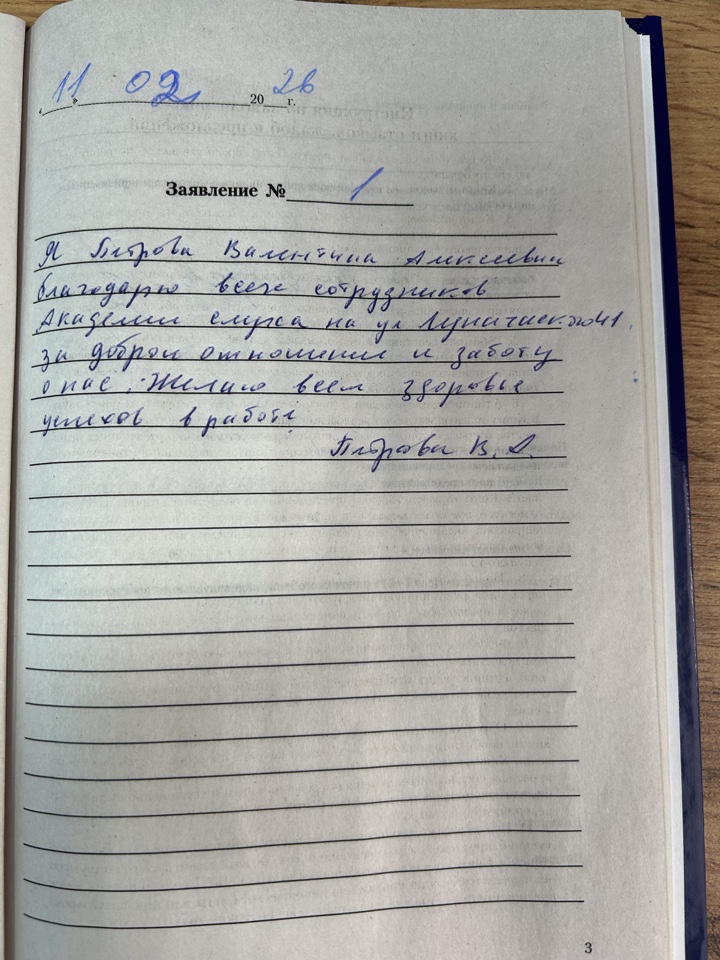 « 11 » 02 20 26 г.
Заявление № 1
Я Петрова Валентина Алексеевна
благодарю всех сотрудников
Академии слуха на ул Луначарского 41.
за доброе отношение и заботу
о нас. Желаю всем здоровье
успехов в работе
Петрова В. А
3